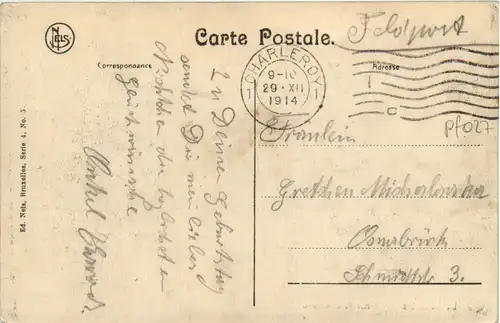 NELS
Carte Postale.
Feldpost
Correspondance
Adresse
CHARLEROY
1 1
9-10
29·XII
1914
C
Pf027
Zu Deinem Geburtstag
sendet Dir mein lieber
die herzlichsten
Glückwünsche
Onkel
Fräulein
Gretchen
Osnabrück
3.
Ed. Nels, Bruxelles, Serie 4, No. 5.